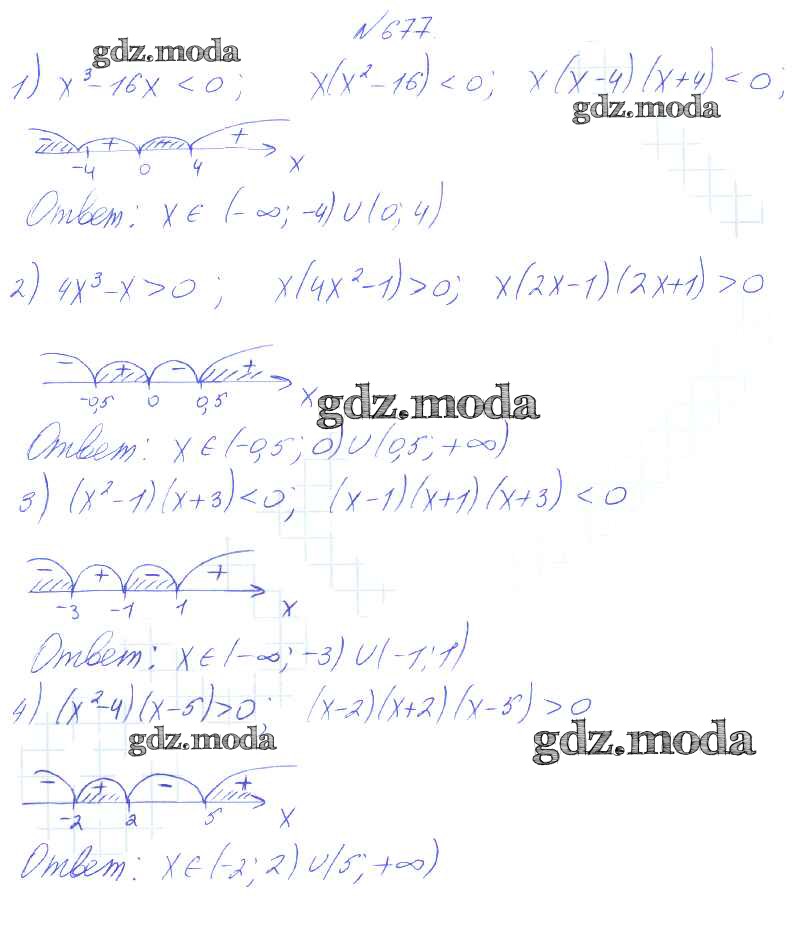 №677.
gdz.moda
1) x³-16x<0; x(x²-16)<0; x(x-4)(x+4)<0;
gdz.moda
- + +
-4 0 4 x
Ответ: x∈(-∞; -4)∪(0; 4)
2) 4x³-x>0; x(4x²-1)>0; x(2x-1)(2x+1)>0
- + - +
-0,5 0 0,5 x
gdz.moda
Ответ: x∈(-0,5; 0)∪(0,5; +∞)
3) (x²-1)(x+3)<0; (x-1)(x+1)(x+3)<0
- + - +
-3 -1 1 x
Ответ: x∈(-∞; -3)∪(-1; 1)
4) (x²-4)(x-5)>0; (x-2)(x+2)(x-5)>0
gdz.moda gdz.moda
- + - +
-2 2 5 x
Ответ: x∈(-2; 2)∪(5; +∞)